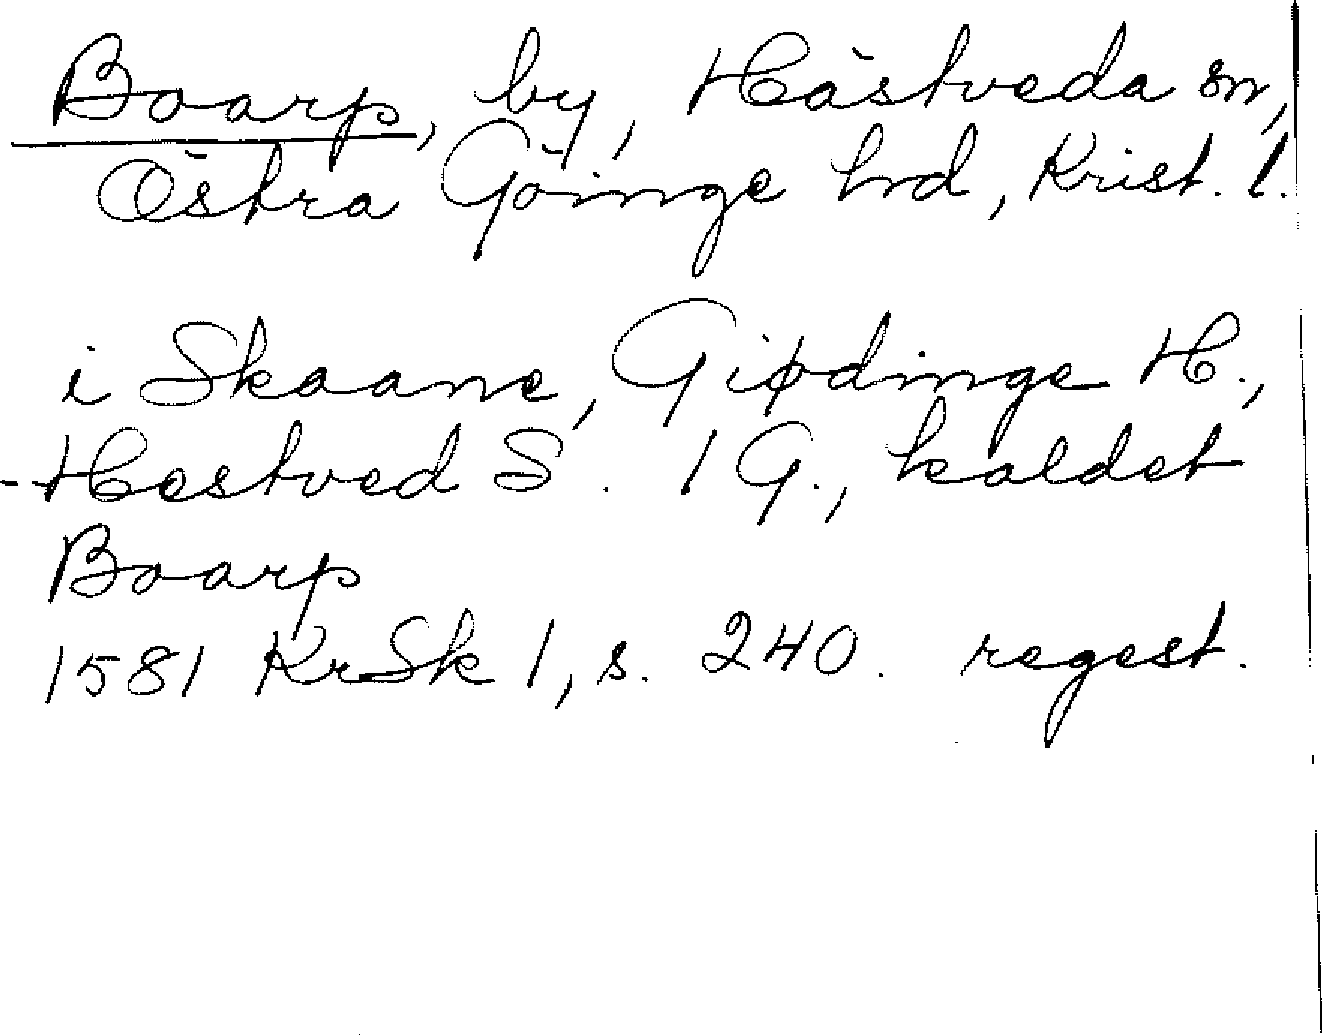 Boarp, by, Hästveda sn,
Östra Göinge hd, Krist. l.
i Skaane, Giødinge H.,
Hestved S. 1 G., kaldet
Boarp
1581 KrSk 1, s. 240. regest.